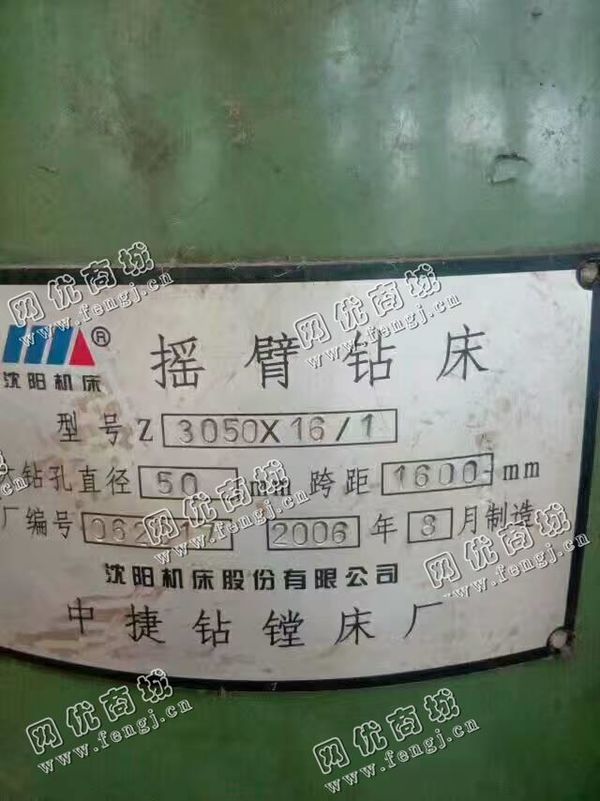 网优商城
www.fengj.cn
网优商城
www.fengj.cn
®
沈阳机床
摇臂钻床
型号Z 3050X16/1
钻孔直径 50 mm 跨距 1600 mm
厂编号 062 2006 年 8 月制造
沈阳机床股份有限公司
中捷钻镗床厂
网优商城
www.fengj.cn
网优商城
www.fengj.cn
网优商城
www.fengj.cn
网优商城
www.fengj.cn